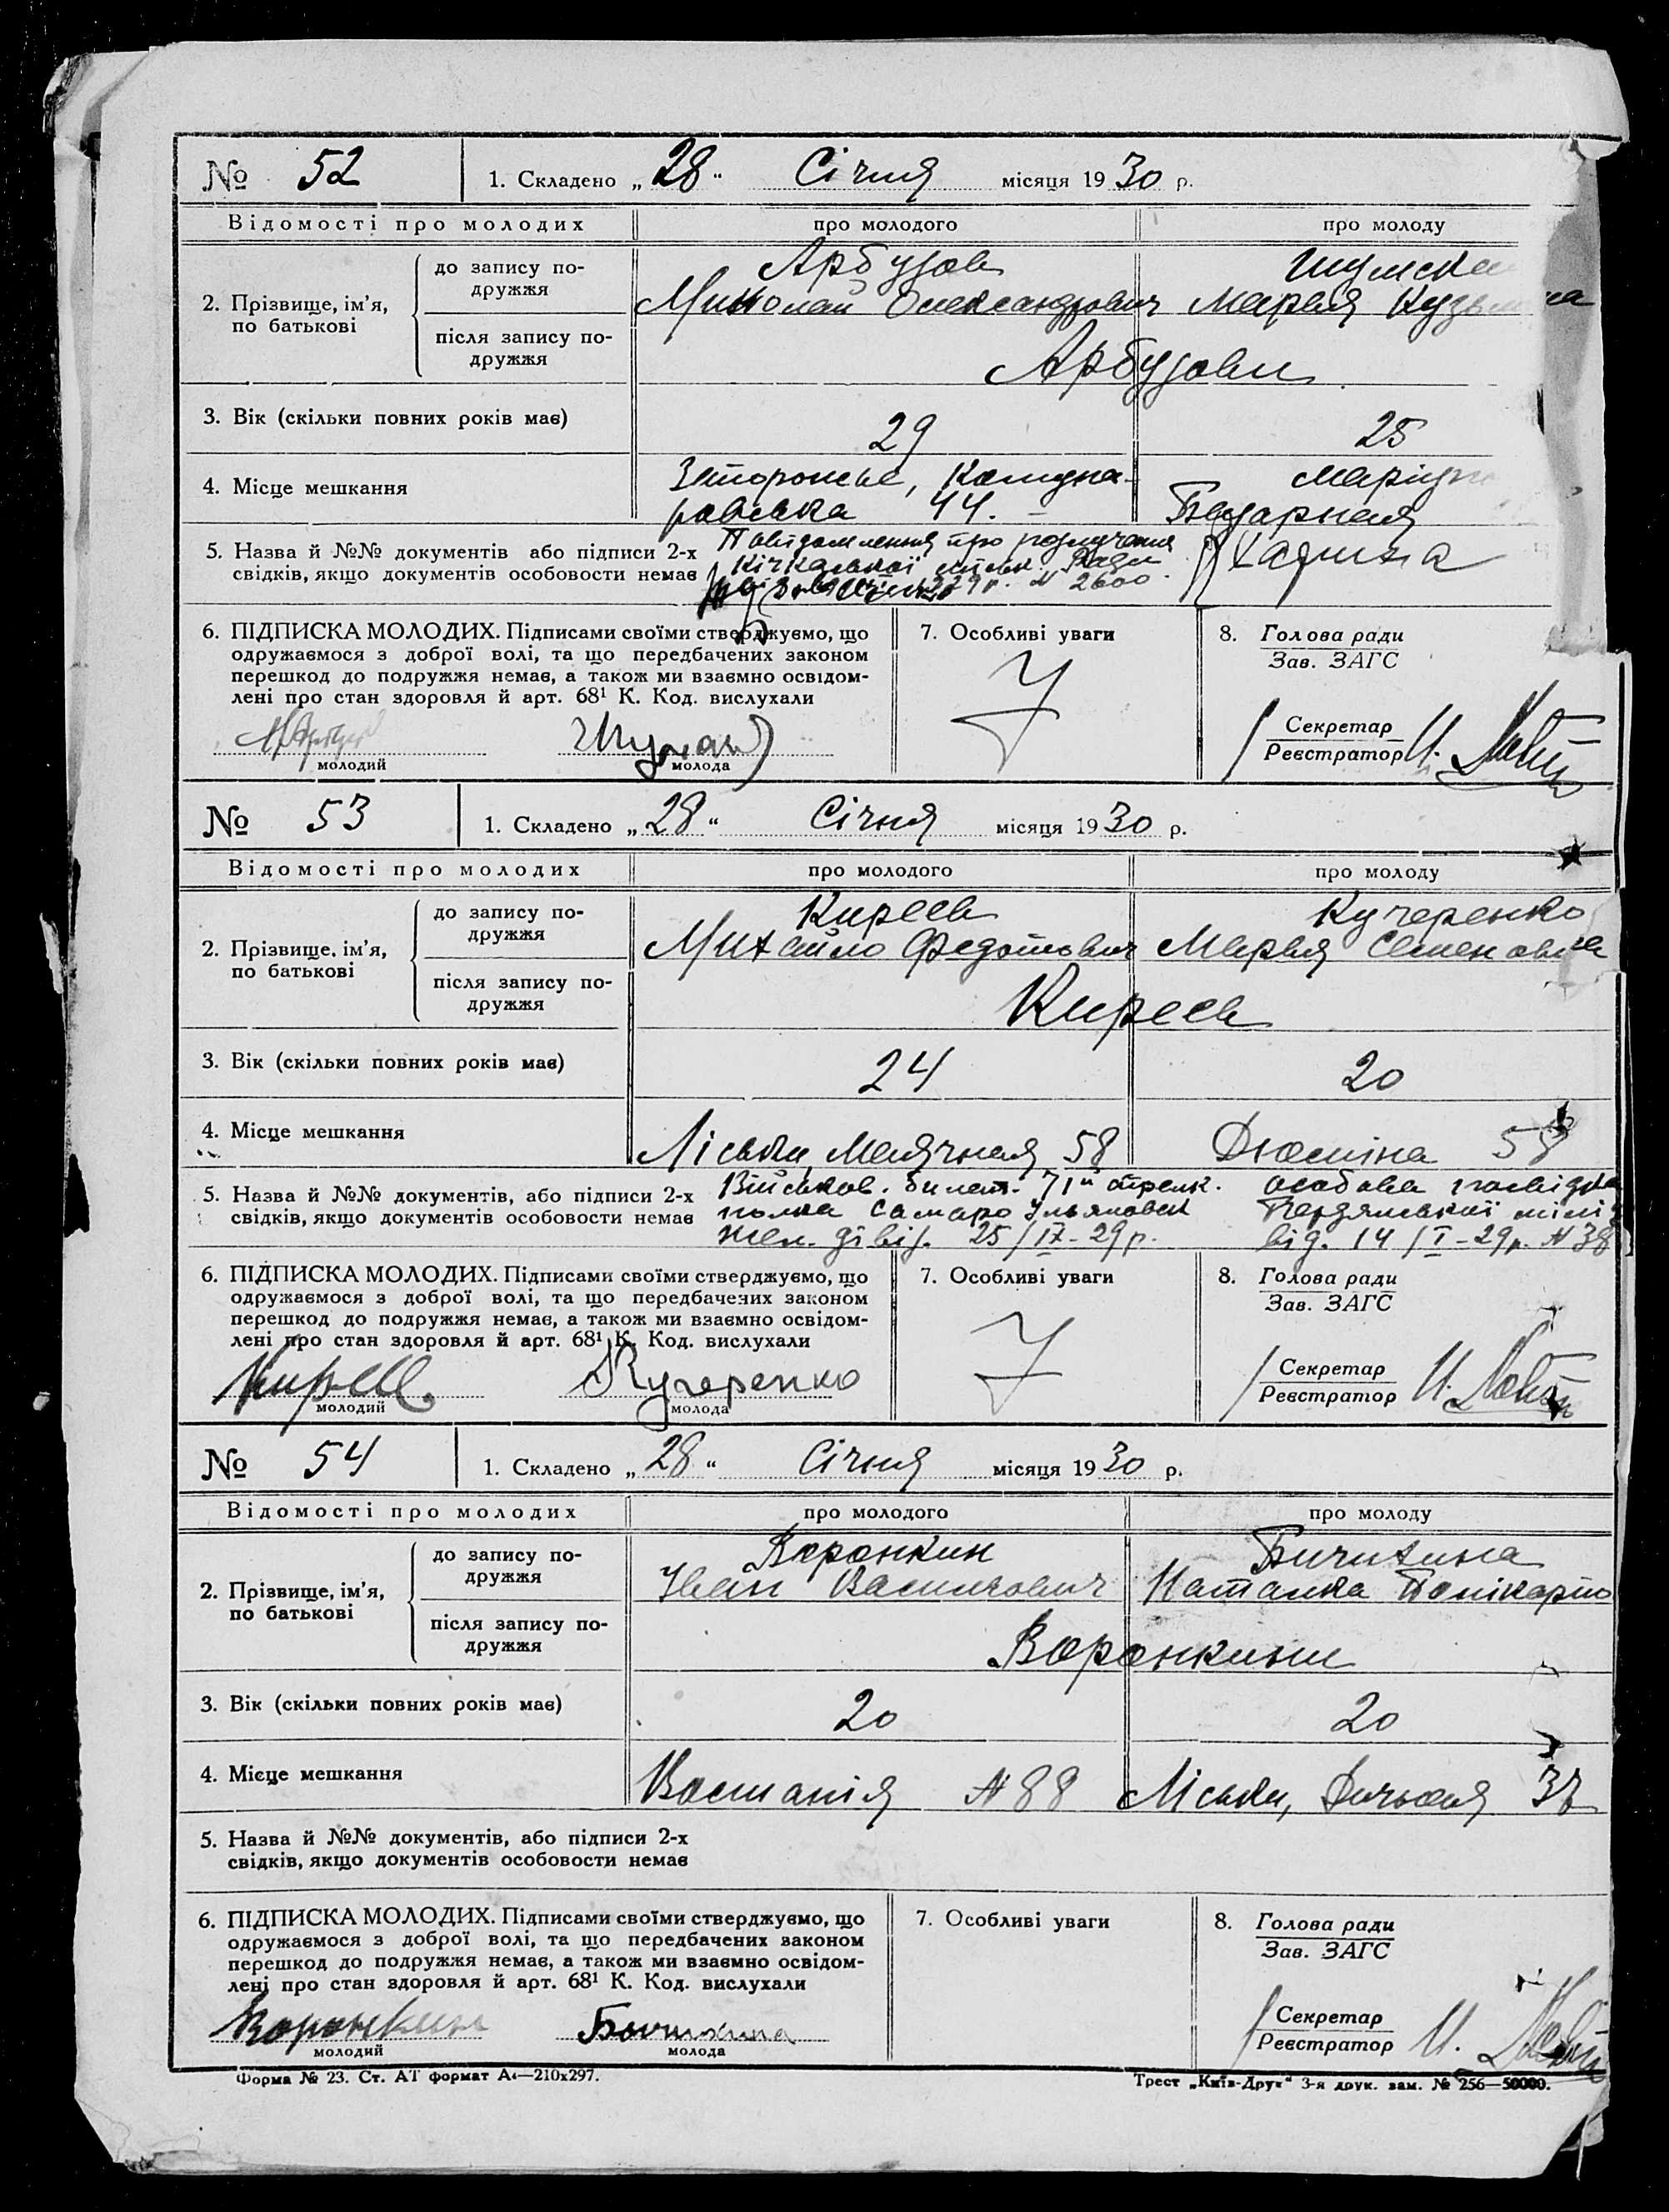 № 52 1. Складено „28“ Січня місяця 1930 р.
Відомості про молодих про молодого про молоду
2. Прізвище, ім’я, по батькові
до запису подружжя
Арбузов
Миколай Олександрович
Шумска
Мария Кузьм на
після запису по-
дружжя
Арбузови
3. Вік (скільки повних років має) 29 25
4. Місце мешкання
44.
Базарная
5. Назва й №№ документів або підписи 2-х
свідків, якщо документів особовости немає
Повідомлення про розлучення
29 р. N 2600
6. ПІДПИСКА МОЛОДИХ. Підписами своїми стверджуємо, що
одружаємося з доброї волі, та що передбачених законом
перешкод до подружжя немає, а також ми взаємно освідом-
лені про стан здоровля й арт. 68¹ К. Код. вислухали
молодий молода
7. Особливі уваги
8. Голова ради
Зав. ЗАГС
Секретар
Реєстратор
№ 53 1. Складено „28“ Січня місяця 1930 р.
Відомості про молодих про молодого про молоду
2. Прізвище, ім’я,
по батькові
до запису по-
дружжя
Киреев
Михайло Федотович
Кучеренко
Мария Семеновна
після запису по-
дружжя
Киреев
3. Вік (скільки повних років має) 24 20
4. Місце мешкання
Ліски, Маячная 58 Дюміна 58
5. Назва й №№ документів, або підписи 2-х
свідків, якщо документів особовости немає
Військов. билет. 71й стрелк.
полка Самаро Ульяновск
жел. дівіз. 25/IX-29р.
особова посвідка
від. 14/I-29р. N 38
6. ПІДПИСКА МОЛОДИХ. Підписами своїми стверджуємо, що
одружаємося з доброї волі, та що передбачених законом
перешкод до подружжя немає, а також ми взаємно освідом-
лені про стан здоровля й арт. 68¹ К. Код. вислухали
Киреев Кучеренко
молодий молода
7. Особливі уваги
8. Голова ради
Зав. ЗАГС
Секретар
Реєстратор
№ 54 1. Складено „28“ Січня місяця 1930 р.
Відомості про молодих про молодого про молоду
2. Прізвище, ім’я,
по батькові
до запису по-
дружжя
Воронкин
Іван Васильович
Бичихина
Наталка Полікарпо
після запису по-
дружжя
Воронкини
3. Вік (скільки повних років має) 20 20
4. Місце мешкання
Востанія N 88 Ліски, 37
5. Назва й №№ документів, або підписи 2-х
свідків, якщо документів особовости немає
6. ПІДПИСКА МОЛОДИХ. Підписами своїми стверджуємо, що
одружаємося з доброї волі, та що передбачених законом
перешкод до подружжя немає, а також ми взаємно освідом-
лені про стан здоровля й арт. 68¹ К. Код. вислухали
Воронкин
молодий молода
7. Особливі уваги
8. Голова ради
Зав. ЗАГС
Секретар
Реєстратор
Форма № 23. Ст. АТ формат А₄—210х297. Трест „Київ-Друк“ 3-я друк. зам. № 256—50000.